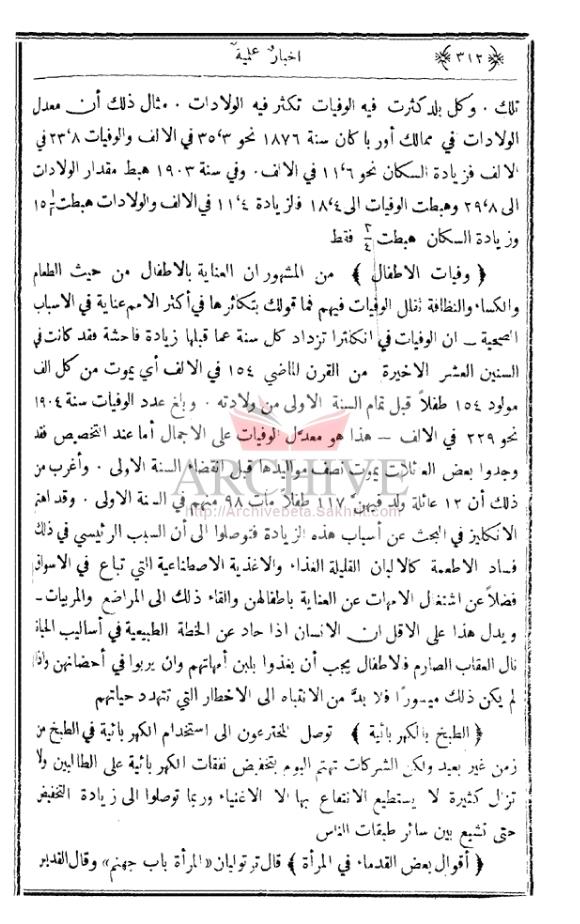 ﴿٣١٢﴾ اخبار علمية
تلك . وكل بلد كثرت فيه الوفيات تكثر فيه الولادات . مثال ذلك أن معدل
الولادات في ممالك أوربا كان سنة ١٨٧٦ نحو ٣٥٬٣ في الالف والوفيات ٢٣٬٨ في
الالف فزيادة السكان نحو ١١٬٦ في الالف . وفي سنة ١٩٠٣ هبط مقدار الولادات
الى ٢٩٬٨ وهبطت الوفيات الى ١٨٬٤ فالزيادة ١١٬٤ في الالف والولادات هبطت
وزيادة السكان هبطت فقط
﴿ وفيات الاطفال ﴾ من المشهور ان العناية بالاطفال من حيث الطعام
والكساء والنظافة تقلل الوفيات فيهم فما قولك بتكاثرها في أكثر الامم عناية في الاسباب
الصحية ــ ان الوفيات في انكلترا تزداد كل سنة عما قبلها زيادة فاحشة فقد كانت في
السنين العشر الاخيرة من القرن الماضي ١٥٤ في الالف أي يموت من كل الف
مولود ١٥٤ طفلاً قبل تمام السنة الاولى من ولادته . وبلغ عدد الوفيات سنة ١٩٠٤
نحو ٢٢٩ في الالف – هذا هو معدَّل الوفيات على الاجمال أما عند التخصيص فقد
وجدوا بعض العائلات يموت نصف مواليدها قبل انقضاء السنة الاولى . وأغرب من
ذلك أن ١٢ عائلة ولد فيهنَّ ١١٧ طفلاً مات ٩٨ منهم في السنة الاولى . وقد اهتم
الانكليز في البحث عن أسباب هذه الزيادة فتوصلوا الى أن السبب الرئيسي في ذلك
فساد الاطعمة كالالبان القليلة الغذاء والاغذية الاصطناعية التي تباع في الاسواق
فضلاً عن اشتغال الامهات عن العناية باطفالهن والقاء ذلك الى المراضع والمربيات ــ
ويدل هذا على الاقل ان الانسان اذا حاد عن الخطة الطبيعية في أساليب الحياة
نال العقاب الصارم فالاطفال يجب أن يغذوا بلبن أمهاتهم وان يربوا في أحضانهن واذا
لم يكن ذلك ميسورًا فلا بدَّ من الانتباه الى الاخطار التي تتهدد حياتهم
﴿ الطبخ بالكهربائية ﴾ توصل المخترعون الى استخدام الكهربائية في الطبخ من
زمن غير بعيد ولكن الشركات تهتم اليوم بتخفيض نفقات الكهربائية على الطالبين ولا
تزال كثيرة لا يستطيع الانتفاع بها الا الاغنياء وربما توصلوا الى زيادة التخفيض
حتى تشيع بين سائر طبقات الناس
﴿ أقوال بعض القدماء في المرأة ﴾ قال ترتوليان «المرأة باب جهنم» وقال القديس
ARCHIVE
http://Archivebeta.Sakhrit.com